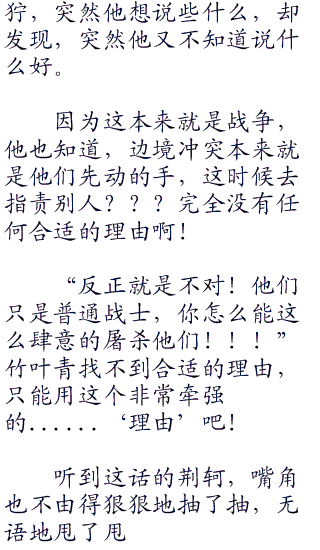 狞，突然他想说些什么，却
发现，突然他又不知道说什
么好。
因为这本来就是战争，
他也知道，边境冲突本来就
是他们先动的手，这时候去
指责别人？？？完全没有任
何合适的理由啊！
“反正就是不对！他们
只是普通战士，你怎么能这
么肆意的屠杀他们！！！”
竹叶青找不到合适的理由，
只能用这个非常牵强
的......‘理由’吧！
听到这话的荆轲，嘴角
也不由得狠狠地抽了抽，无
语地甩了甩